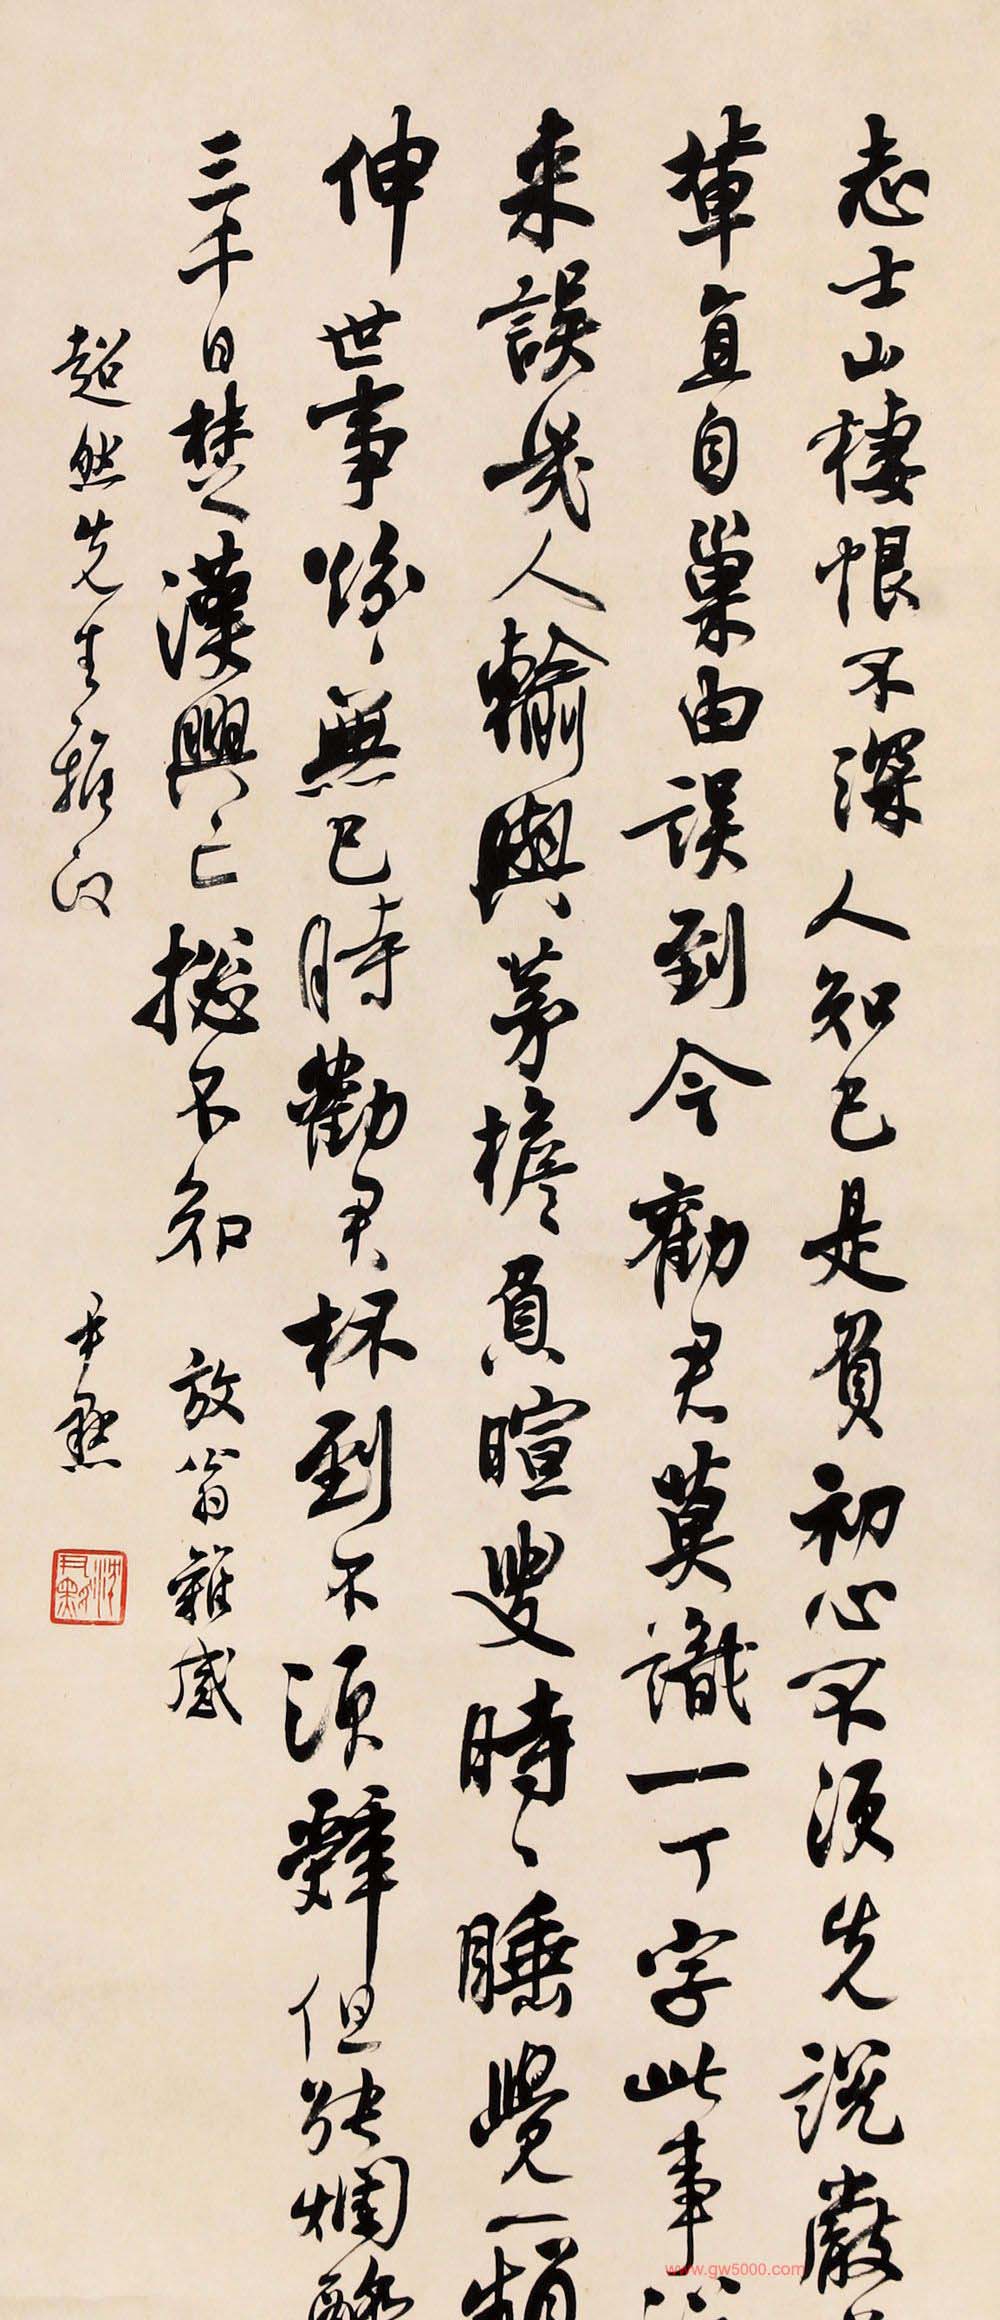 志士山棲恨不深人知已是負初心不須先說嚴
輩直自巢由誤到今勸君莫識一丁字此事
来誤幾人輸與茅檐負暄叟時〻睡覺一頻
伸世事紛〻無已時勸君杯到不須辭但能爛
三千日楚漢興亡揔不知 放翁雜感
超然先生雅正
尹默
沈尹默
www.gw5000.com